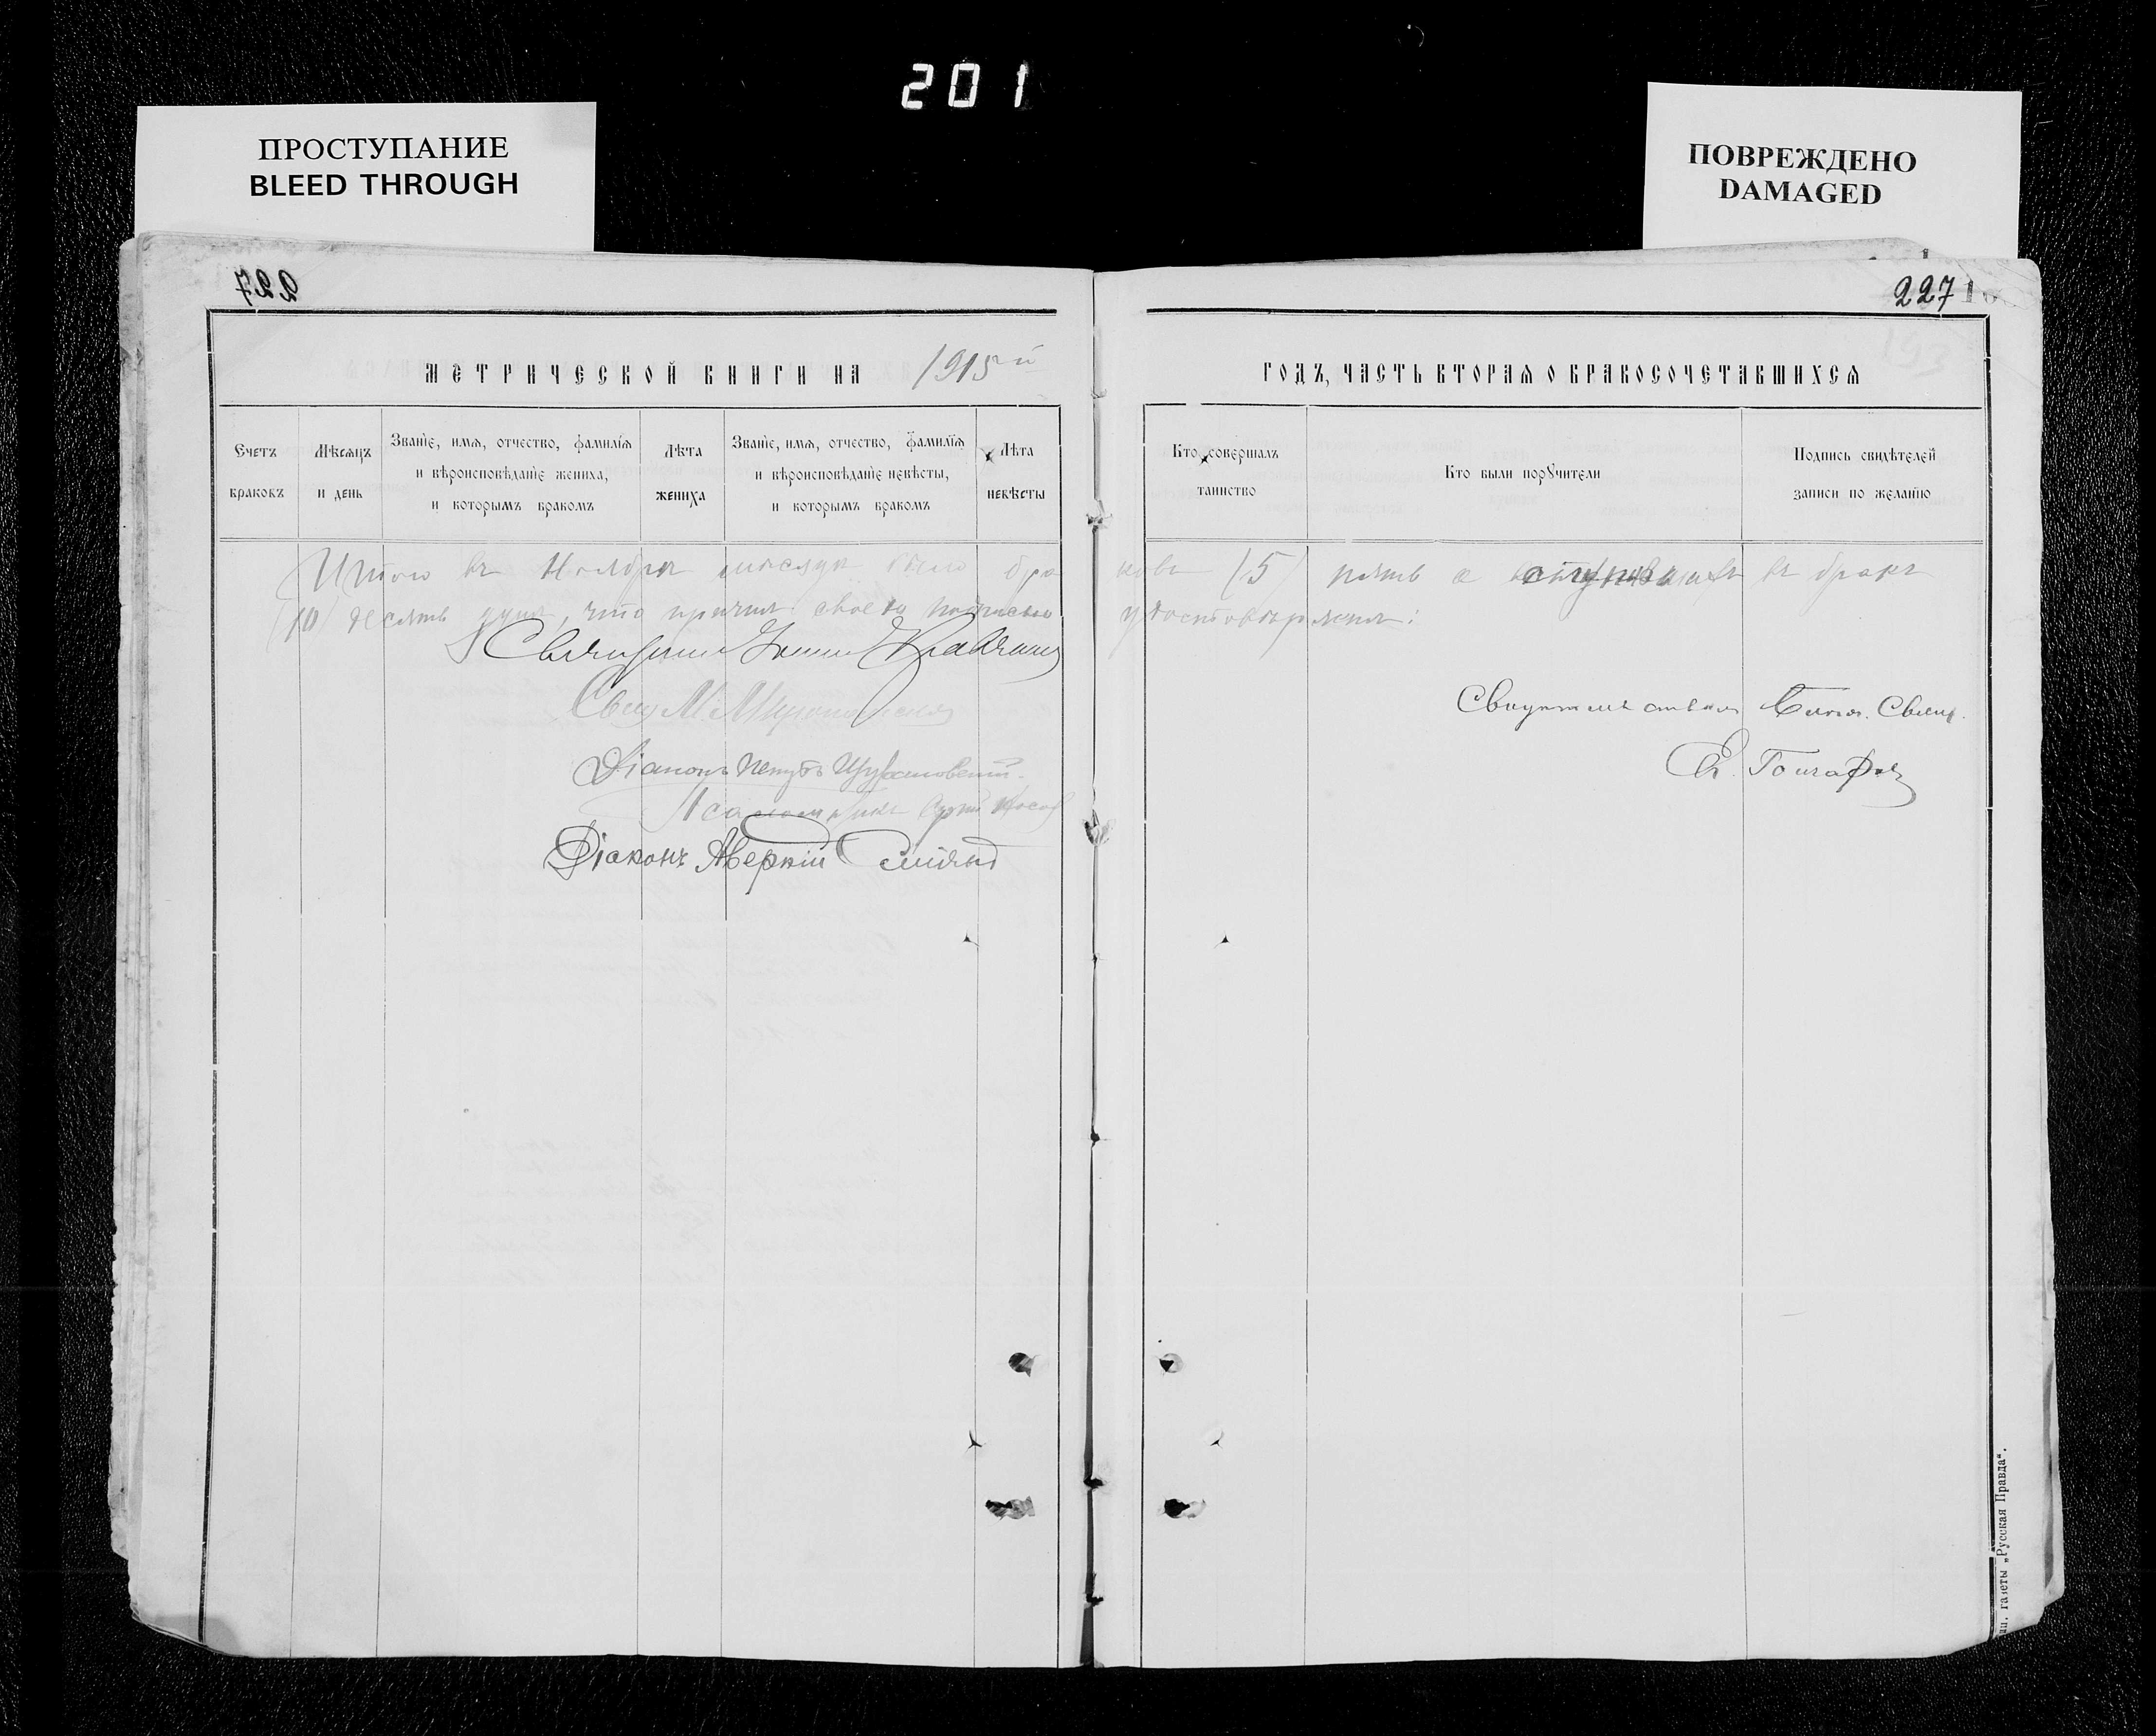 201
ПРОСТУПАНИЕ
BLEED THROUGH
ПОВРЕЖДЕНО
DAMAGED
227
227
МЕТРИЧЕСКОЙ КНИГИ НА 1915 й
ГОДЪ, ЧАСТЬ ВТОРАЯ О БРАКОСОЧЕТАВШИХСЯ
Счетъ браковъ
Мѣсяцъ и день
Званіе, имя, отчество, фамилія
и вѣроисповѣданіе жениха,
и которымъ бракомъ
Лѣта жениха
Званіе, имя, отчество, фамилія
и вѣроисповѣданіе невѣсты,
и которымъ бракомъ
Лѣта невѣсты
Кто совершалъ
таинство
Кто были поручители
Подпись свидѣтелей
записи по желанію
Итого въ Ноябрѣ мѣсяцѣ было браковъ (5) пять а вступившихъ въ бракъ
(10) десять душъ, что причтъ своею подписью удостовѣряетъ:
Священникъ Іоаннъ
Свящ. М.
Діаконъ
Псаломщикъ
Діаконъ Аверкій
Свящ.
Е. Гончаровъ
газеты „Русская Правда“.